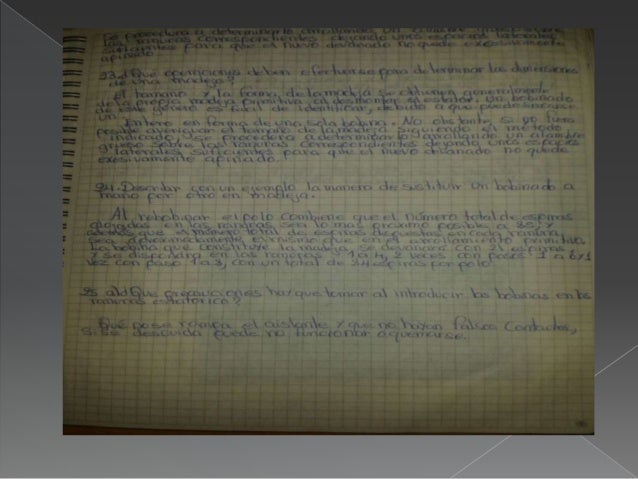 Se procedera a determinarlo arrollando un alambre grueso sobre
las ranuras correspondientes dejando unos espacios laterales
suficientes para que el nuevo devanado no quede excesivamente
apiñado.
23. ¿Qué operaciones deben efectuarse para determinar las dimensiones
de una madeja?
El tamaño y la forma de la madeja se obtienen generalmente
de la propia madeja primitiva, al desmontar el estator. Un bobinado
de este genero es facil de identificar, debido a que puede sacarse
un
Entero en forma de una sola bobina. No obstante, si no fuese
posible averiguar el tamaño de la madeja siguiendo el método
indicado, se procedera a determinarlo arrollando un alambre
grueso sobre las ranuras correspondientes dejando unos espacios
laterales suficientes para que el nuevo devanado no quede
exesivamente apiñado.
24. Describir con un ejemplo la manera de sustituir un bobinado a
mano por otro en madeja.
Al rebobinar el polo combiene que el número total de espiras
alojadas en las ranuras sea lo mas proximo posible a 35, y
ademas que el número total de espiras dispuestas en cada ranura
sea aproximadamente el mismo que en el arrollamiento primitivo.
La bobina que constituye la madeja, se devanara con 21 espiras
y se dispondra en las ranuras 1 a 4, 2 veces con pasos 1 a 6 y 1
vez con paso 1 a 3, con un total de 34 espiras por polo.
25 al ¿Que precauciones hay que tomar al introducir las bobinas en las
ranuras estatorico?
Qué no se rompa el aislante y que no hayan falsos contactos,
si se descuida puede no funcionar o quemarse.